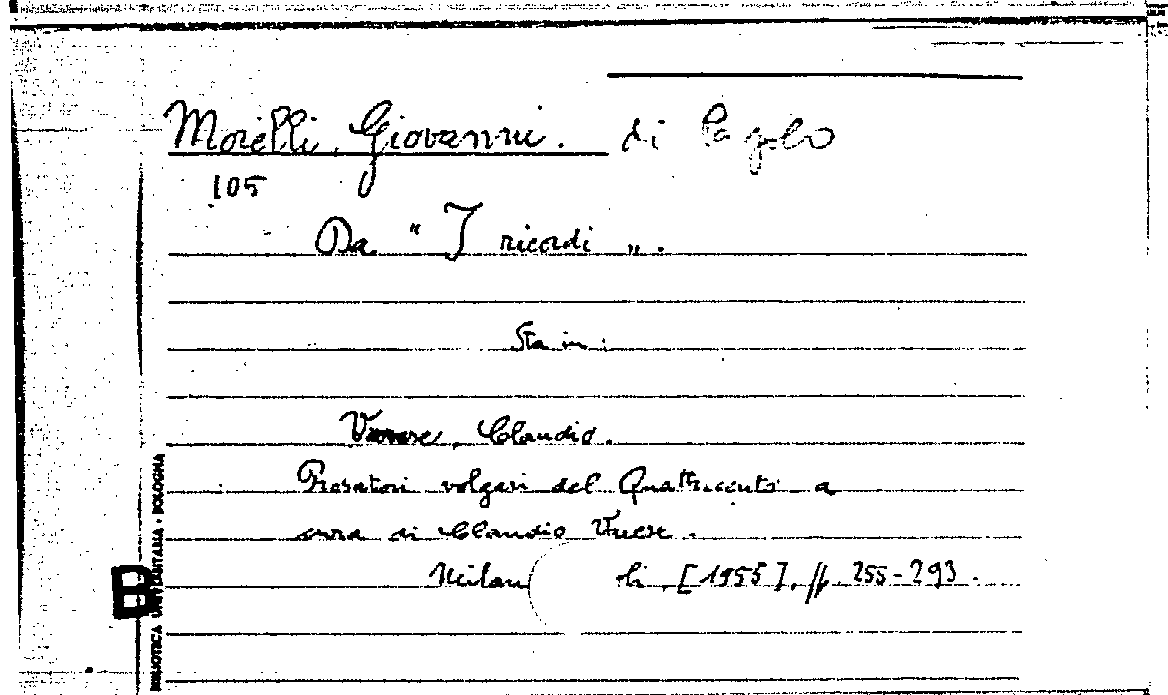 Morelli, Giovanni. di Pagolo
105
Da " I ricordi ".
Sta in:
Varese, Claudio.
Prosatori volgari del Quattrocento a
cura di Claudio Varese.
Milano [1955], pp 255-293.
BIBLIOTECA UNITARIA · BOLOGNA
B